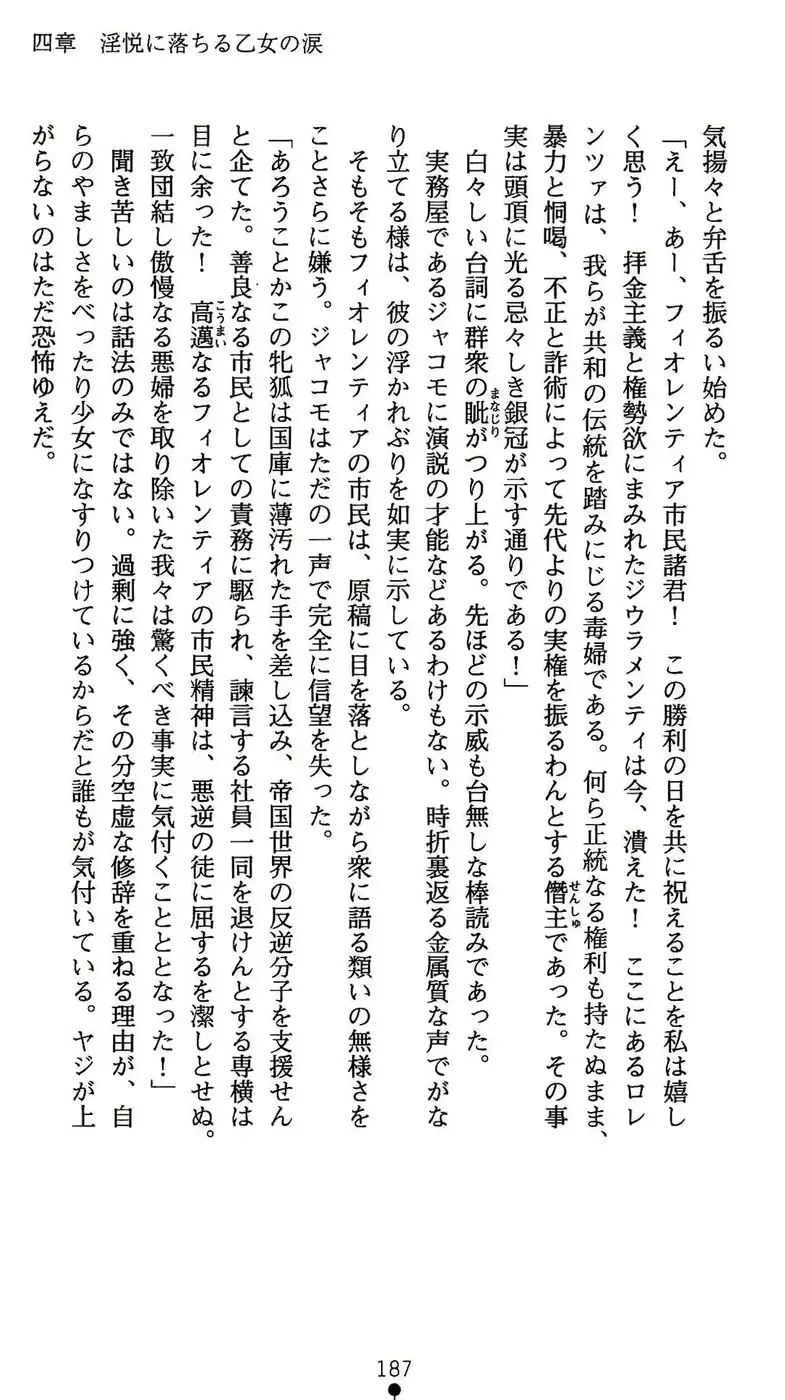 四章　淫悦に落ちる乙女の涙
気揚々と弁舌を振るい始めた。
「えー、あー、フィオレンティア市民諸君！　この勝利の日を共に祝えることを私は嬉し
く思う！　拝金主義と権勢欲にまみれたジウラメンティは今、潰えた！　ここにあるロレ
ンツァは、我らが共和の伝統を踏みにじる毒婦である。何ら正統なる権利も持たぬまま、
暴力と恫喝、不正と詐術によって先代よりの実権を振るわんとする僭主であった。その事
実は頭頂に光る忌々しき銀冠が示す通りである！」
白々しい台詞に群衆の眦がつり上がる。先ほどの示威も台無しな棒読みであった。
実務屋であるジャコモに演説の才能などあるわけもない。時折裏返る金属質な声でがな
り立てる様は、彼の浮かれぶりを如実に示している。
そもそもフィオレンティアの市民は、原稿に目を落としながら衆に語る類いの無様さを
ことさらに嫌う。ジャコモはただの一声で完全に信望を失った。
「あろうことかこの牝狐は国庫に薄汚れた手を差し込み、帝国世界の反逆分子を支援せん
と企てた。善良なる市民としての責務に駆られ、諫言する社員一同を退けんとする専横は
目に余った！　高邁なるフィオレンティアの市民精神は、悪逆の徒に屈するを潔しとせぬ。
一致団結し傲慢なる悪婦を取り除いた我々は驚くべき事実に気付くこととなった！」
聞き苦しいのは話法のみではない。過剰に強く、その分空虚な修辞を重ねる理由が、自
らのやましさをべったり少女になすりつけているからだと誰もが気付いている。ヤジが上
がらないのはただ恐怖ゆえだ。
まなじり
せんしゅ
こうまい
187